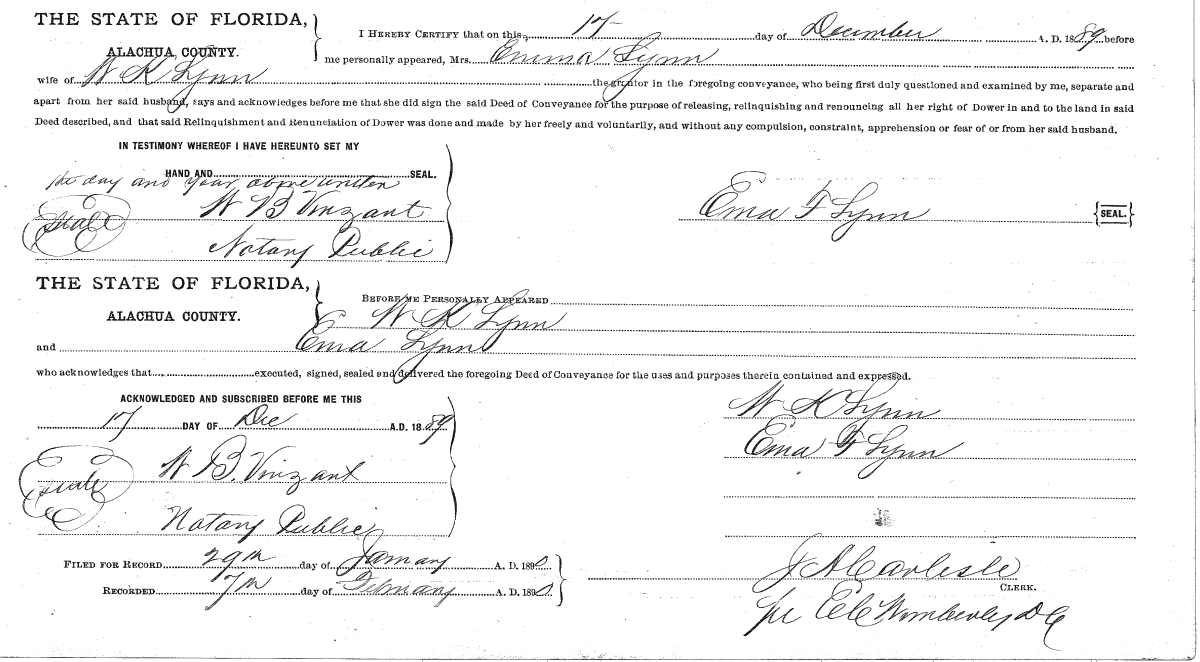 THE STATE OF FLORIDA,
ALACHUA COUNTY.
I HEREBY CERTIFY that on this 17 day of December A. D. 1889 before
me personally appeared, Mrs. Emma Lynn
wife of W K Lynn the grantor in the foregoing conveyance, who being first duly questioned and examined by me, separate and
apart from her said husband, says and acknowledges before me that she did sign the said Deed of Conveyance for the purpose of releasing, relinquishing and renouncing all her right of Dower in and to the land in said
Deed described, and that said Relinquishment and Renunciation of Dower was done and made by her freely and voluntarily, and without any compulsion, constraint, apprehension or fear of or from her said husband.
IN TESTIMONY WHEREOF I HAVE HEREUNTO SET MY
HAND AND SEAL.
the day and year above written
W B Vinzant
Seal
Notary Public
Ema F Lynn {SEAL.}
THE STATE OF FLORIDA,
ALACHUA COUNTY.
BEFORE ME PERSONALLY APPEARED
W K Lynn
and Ema Lynn
who acknowledges that executed, signed, sealed and delivered the foregoing Deed of Conveyance for the uses and purposes therein contained and expressed.
ACKNOWLEDGED AND SUBSCRIBED BEFORE ME THIS
17 DAY OF Dec A.D. 1889
W K Lynn
Ema F Lynn
W B. Vinzant
Notary Public
FILED FOR RECORD 29th day of January A. D. 1890
RECORDED 7th day of February A. D. 1890
J A Carlisle
CLERK.
per Wimberley D C